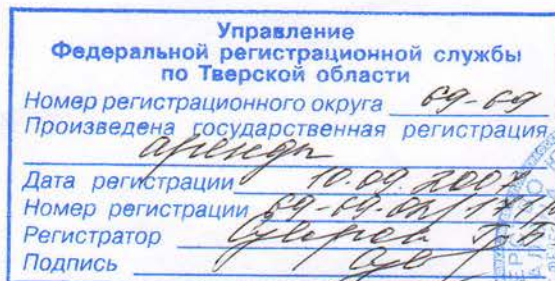 Управление
Федеральной регистрационной службы
по Тверской области
Номер регистрационного округа 69-69
Произведена государственная регистрация
аренды
Дата регистрации 10.09.2007
Номер регистрации
Регистратор
Подпись